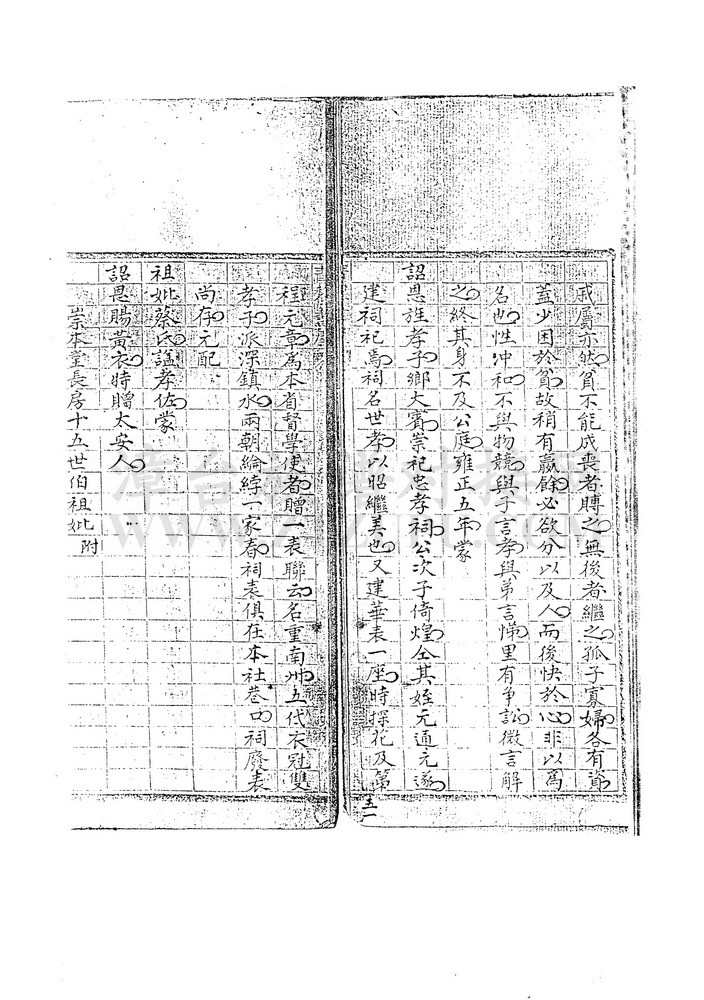 戚屬亦然貧不能成喪者賻之無後者繼之孤子寡婦各有資
蓋少困於貧故稍有贏餘必欲分以及人而後快於心非以為
名也性沖和不與物競與子言孝與弟言悌里有爭訟微言解
之終其身不及公庭雍正五年蒙
詔恩旌孝子鄉大賓崇祀忠孝祠公次子倚煌仝其姪元通元遂
建祠祀焉祠名世孝以昭繼美也又建華表一座時探花及第
程元章為本省督學使者贈一表聯云名重南州五代衣冠雙
孝子派深鎮水兩朝綸綍一家春祠表俱在本社巷口祠廢表
尚存元配
祖妣蔡氏謚孝佐蒙
詔恩賜黃衣特贈太安人
崇本堂長房十五世伯祖妣 附